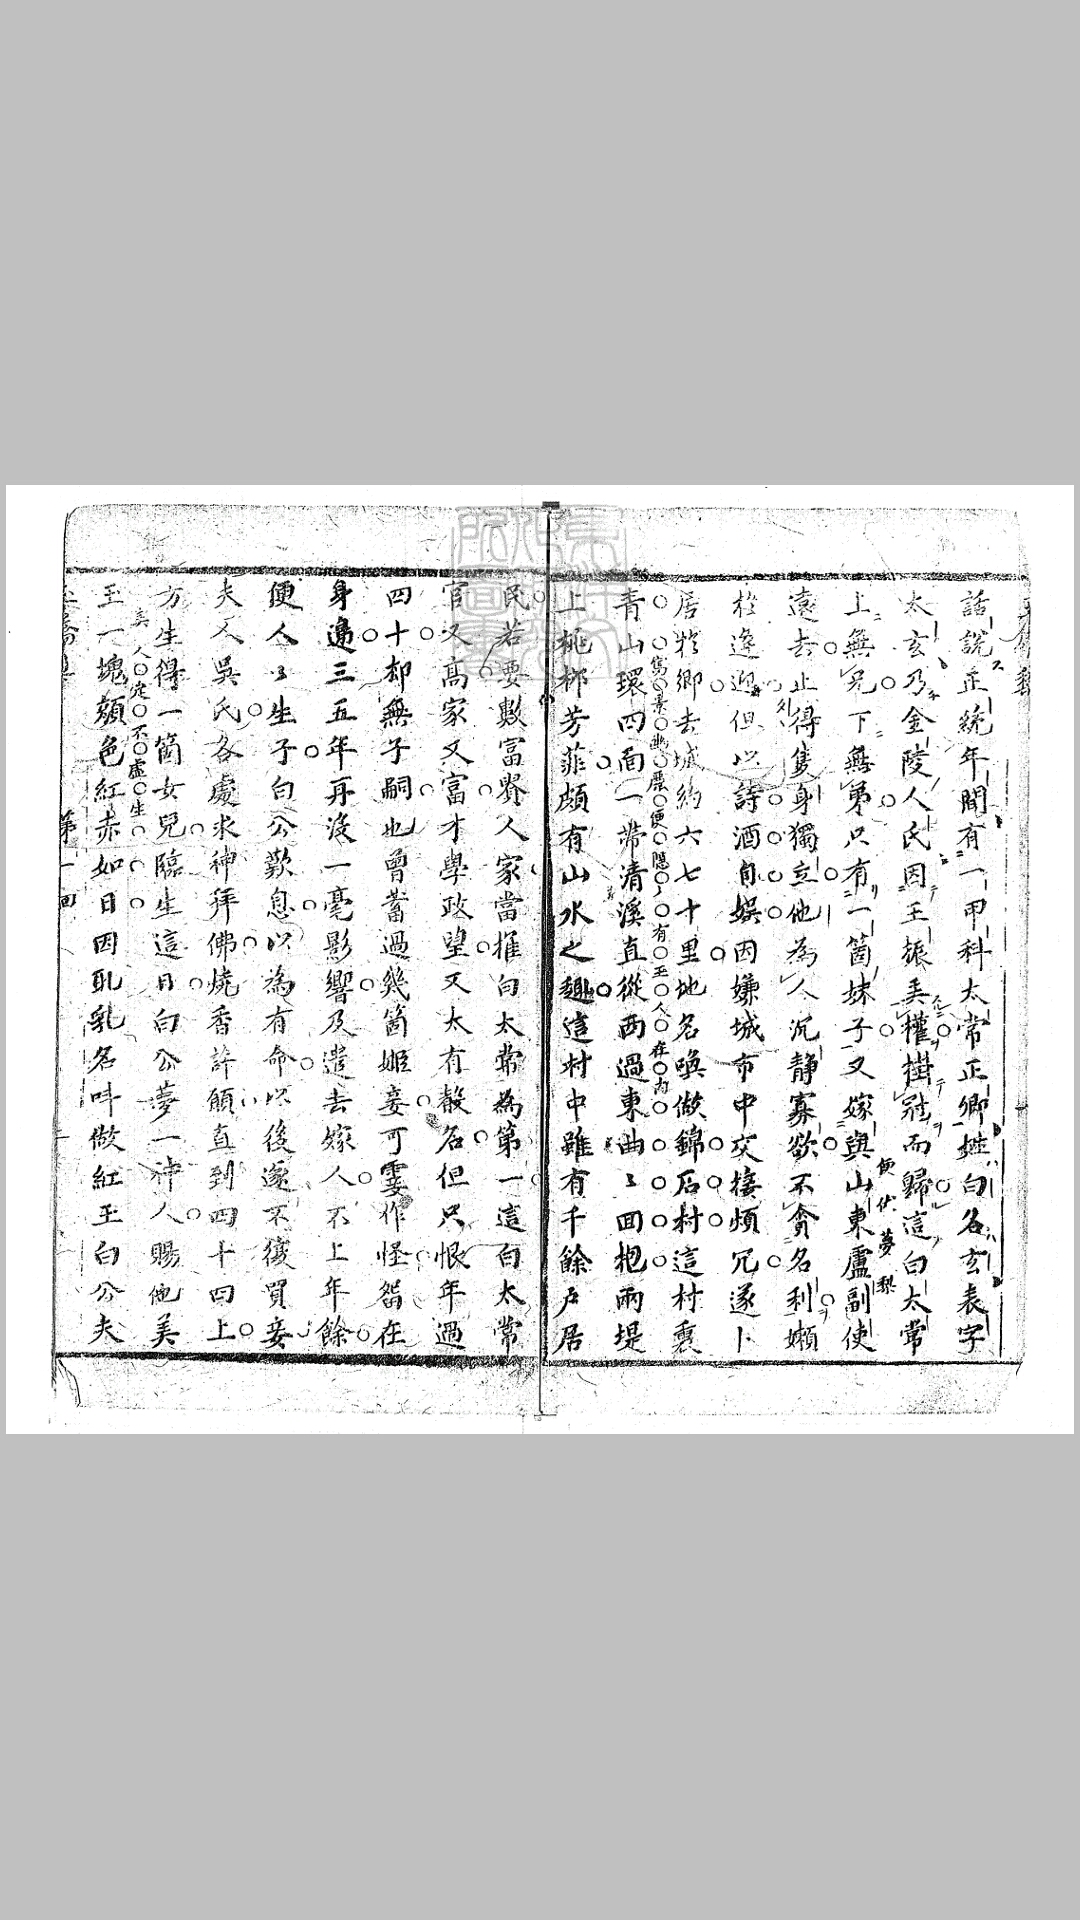 話說正統年間有一甲科太常正卿姓白名玄表字
太玄乃金陵人氏因王振弄權掛冠而歸這白太常
上無兄下無弟只有一箇妹子又嫁與山東盧副使
便伏夢梨
遠去止得隻身獨立他為人沉静寡欲不貪名利嬾
於逢迎但以詩酒自娛因嫌城市中交接煩冗遂卜
居於鄉去城約六七十里地名喚做錦石村這村裏
寫景幽麗便隱〻有玉人在內
青山環四面一帶清溪直從西過東曲〻回抱兩堤
上桃柳芳菲頗有山水之趣這村中雖有千餘戶居
民若要數富貴人家當推白太常為第一這白太常
官又高家又富才學政望又大有聲名但只恨年過
四十却無子嗣也曾蓄過幾箇姬妾可霎作怪留在
身邊三五年再沒一毫影響及遣去嫁人不上年餘
便人〻生子白公歎息以為有命以後遂不復買妾
夫人吳氏各處求神拜佛燒香許願直到四十四上
方生得一箇女兒臨生這日白公夢一神人賜他美
美人定不虛生
玉一塊顏色紅赤如日因取乳名叫做紅玉白公夫
第一回